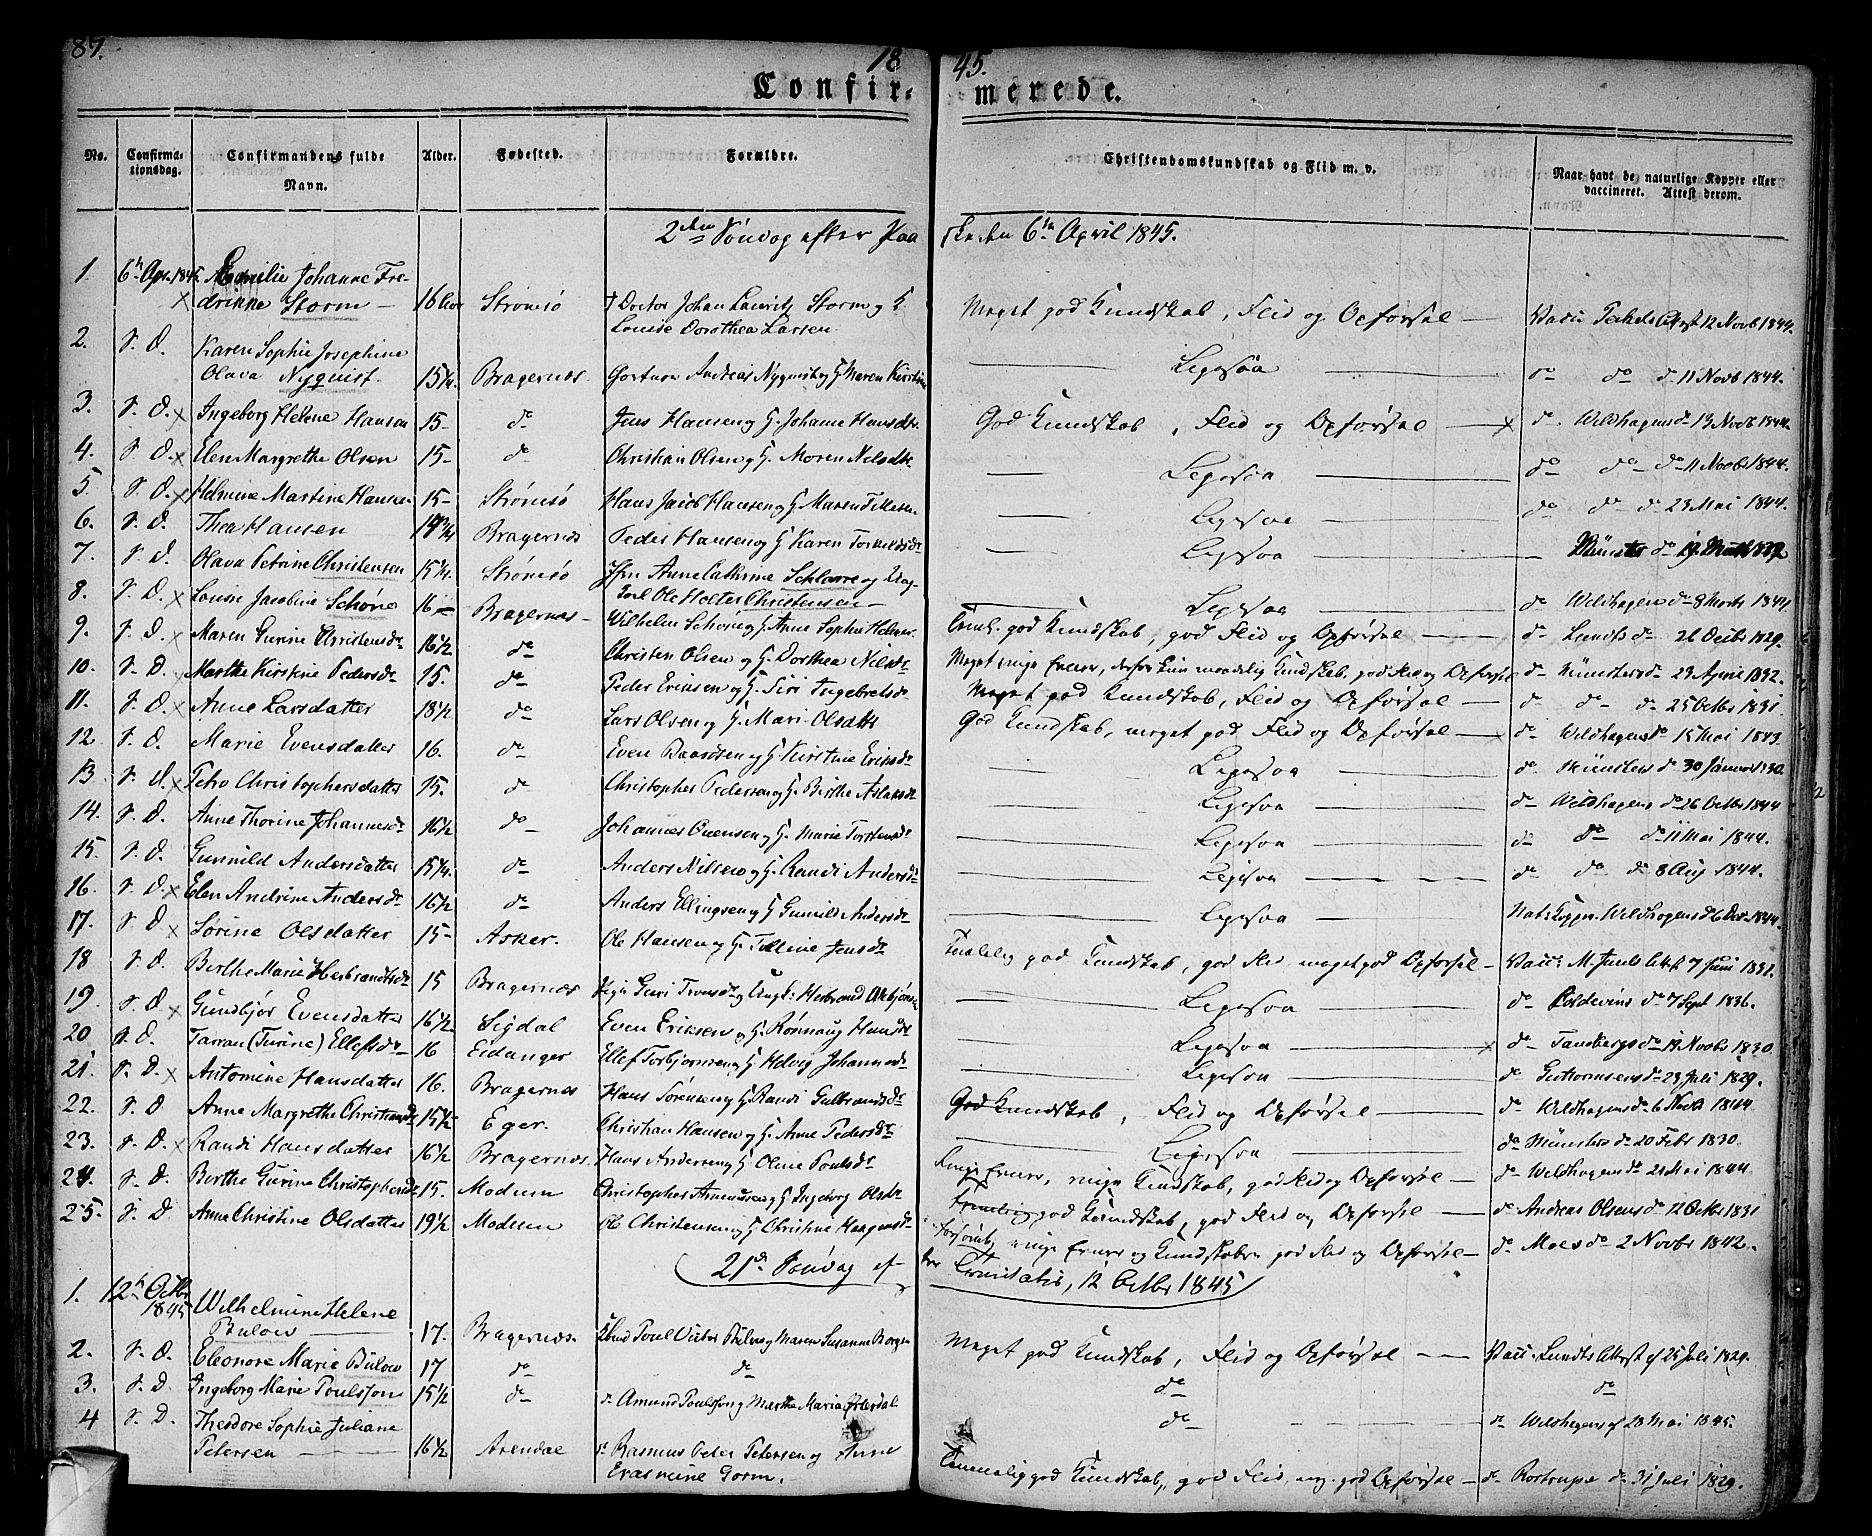 87.
18 45.
Confir- merede.
No. Confirma- Confirmandens fulde Alder. Fødested. Forældre. Christendomskundskab og Flid m. v. Naar havt de naturlige Kopper eller
tionsdag. Navn. vaccineret. Attest derom.
2den Søndag efter Paa skeden 6te April 1845.
1. 6te Apr. 1845 Emilie Johanne Fre-
drikke Storm 16 Strømsø † Doctor Johan Lauritz Storm og Meget god Kundskab, Flid og Opførsel Vacc. Attest 12 Novb 1844.
Louise Dorothea Larsen
2. S. D. Karen Sophie Josephine
Olava Nyquist. 15¼. Bragernes. Andreas Nyquist og H. Maren Kirstine Ligesaa do do d 11 Novb 1844.
3. S. D. Ingeborg Helene Hansen 15 do Jens Hansen og H. Johanne Hansdtr God Kundskab, Flid og Opførsel d. Wildhagens do 13 Novb 1844.
4. S. D. Elen Margrethe Olsen 15 do Christian Olsen og H. Maren Nilsdtr. Ligesaa do do do 11 Novbr 1844.
5. S. D. Helmine Martine Hansen 15 Strømsø Hans Jacob Hansen og H. Maren Ligesaa do do d 23 Mai 1844.
6. S. D. Thea Hansen 14¾ Bragernes Peder Hansen og H. Karen Ligesaa Münster do
7. S. D. Olava Petrine Christensen 15¼. Strømsø Anne Cathrine og Ung-
karl Ole Holter Christensen Ligesaa do Wildhagens do 8 Marts 1844
8. S. D. Louise Jacobine Schøne 16 Bragernes Wilhelm Schøne og H. Anne Sophie god Kundskab, god Flid og Opførsel do Lunds do 26 Octbr 1829.
9. S. D. Maren Gurine Christensdr 16½ do Christen Olsen og H. Dorthea Nilsdr Meget ringe Evner, derfor kun maadelig Kundskab, god Flid og Opførsel do Münsters do 29 April 1832.
10. S. D. Marthe Kirstine Pedersdr 15. do Peder Eriksen og H. Siri Ingebretsdr Meget god Kundskab, Flid og Opførsel d do d 25 Octbr 1831
11. S. D. Anne Larsdatter 18½ do Lars Olsen og H. Mari Olsdtr God Kundskab, meget god Flid og Opførsel do Wildhagens do 15 Mai 1843.
12 S. D. Marie Evensdatter 16. do Even Baardsen og H. Kirstine Eriksdr Ligesaa do Münsters do 30 Januar 1830.
13 S. D. Petro Christophersdatter 15. do Christopher Pedersen og H. Birthe Aslaksdr Ligesaa do Wildhagens do 26 Octbr 1844
14. S. D. Anne Thorine Johannesdr 16½ do Johannes og H. Marie Torstensdr Ligesaa do do do 11 Mai 1844.
15. S. D. Gunnild Andersdatter 15¼. do Anders Nilsen og H. Randi Andersdr Ligesaa do do do 8 Aug 1844.
16. S. D. Elen Andrine Andersdr 16½ do Anders Ellingsen og H. Gunnild Andersdr Ligesaa Nat: Wildhagens do 6 Dec 1844.
17. S. D Sørine Olsdatter 15 Asker. Ole Hansen og H. Jensdr Temmelig god Kundskab, god Flid meget god Opførsel Vacc: M. Attest 7 Juni 1831.
18 S. D. Berthe Marie Herbrandsdr 15 Bragernes Pige Guri og Ungk: Herbrand Ligesaa do do 7 Sept 1836.
19. S. D. Gundbjør Evensdatter 16½ Sigdal Even Eriksen og H. Rønnaug Hansdr Ligesaa do Tandbergs do 14 Novbr 1830
20 S. D. Tarran (Turine) Ellefsdr 16 Eidanger Ellef Torbjørnsen og H. Helvig Johannesdr Ligesaa do Guttormsens do 29 Juli 1829.
21. S. D. Antonine Hansdatter 16. Bragernes Hans Sørensen og H. Randi Gulbrandsdr God Kundskab, Flid og Opførsel do Wildhagens do 6 Novbr 1844.
22. S. D Anne Margrethe Christiansdr 15½ Eger. Christian Hansen og H. Anne Pedersdr Ligesaa do Münsters do 20 Febr 1830.
23. S. D. Randi Hansdatter 16½ Bragernes. Hans Andersen og H. Oline Poulsdr Ringe Evner, ringe Kundskab, god Flid og Opførsel do Wildhagens do 21 Mai 1844.
24. S. D. Berthe Gurine Christophersdr 15. Modum Christopher Asmundsen og H. Ingeborg Olsdr Temmelig god Kundskab, god Flid og Opførsel do Andreas Olsens do 12 Octbr 1831
25. S. D. Anne Christine Olsdatter 19½ Modum Ole Christensen og H. Christine Haagensdr Forsømt, ringe Evner og Kundskaber, god Flid og Opførsel do Moes do 2 Novbr 1842.
21de Søndag ef- ter Trinitatis, 12 Octbr 1845
1. 12te Octbr
1845 Wilhelmine Helene
Bülow 17. Bragernes. Poul Victor Bülow og Maren Susanne Borgen Meget god Kundskab, Flid og Opførsel Vacc. Lundts Attest af 25 Juli 1829.
2. S. D. Eleonore Marie Bülow 17 do do do do
3. S. D. Ingeborg Marie Poulsson 15½ do d. Amund Poulsson og Marthe Maria Østerdal do do Wildhagens af 28 Mai 1845.
4 S. D. Theodore Sophie Juliane
Petersen 16½ Arendal d. Rasmus Peter Petersen og Anne Temmelig god Kundskab, god Flid, meg. god Opførsel do Rostrups do 31 Juli 1829.
Erasmine Gorm.